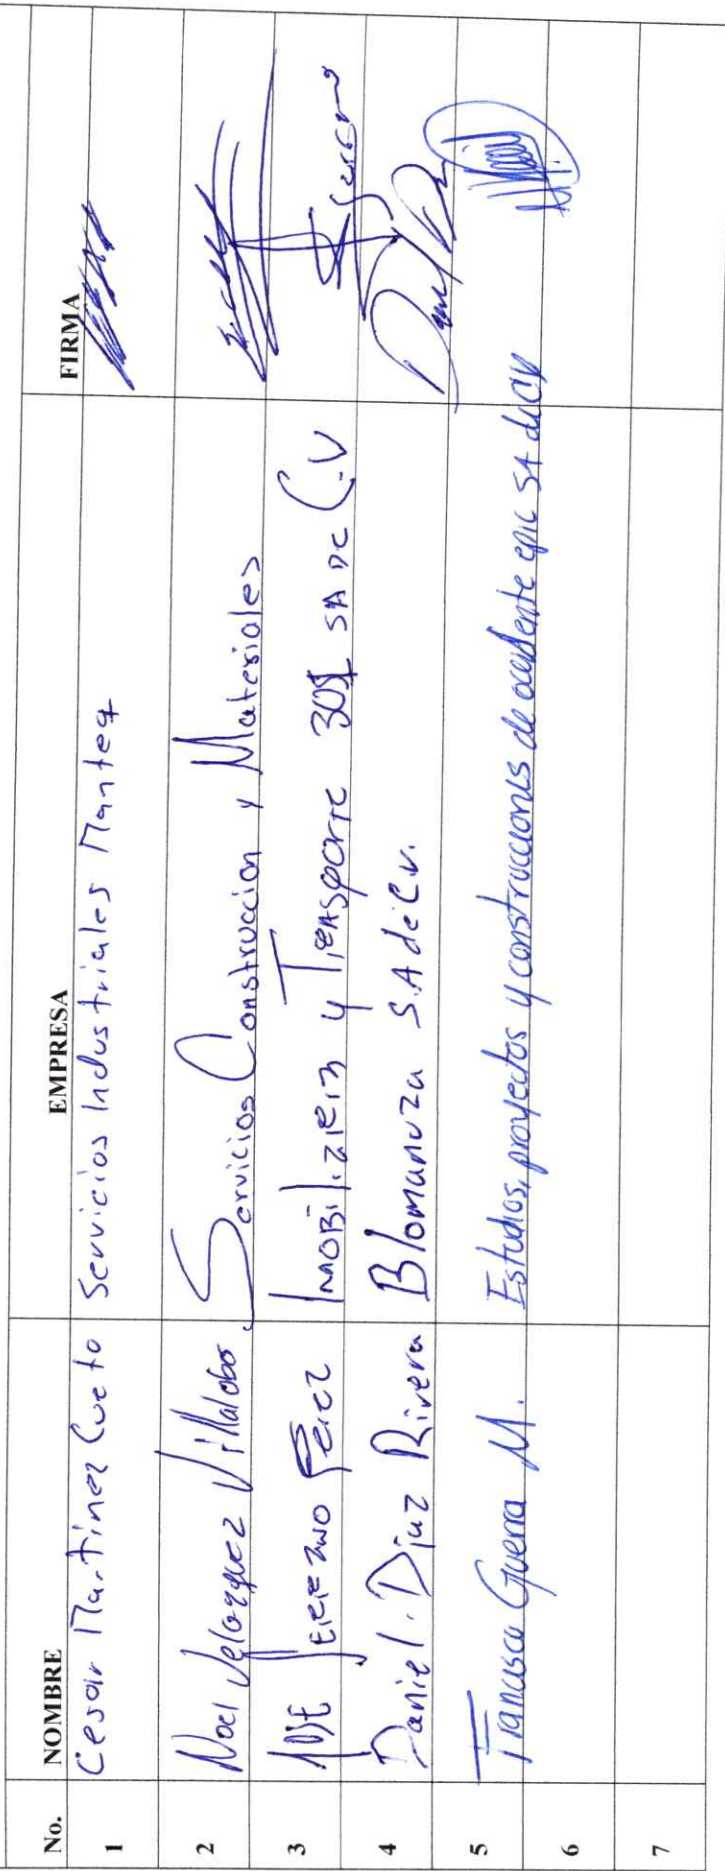 No. NOMBRE EMPRESA FIRMA
1 Cesar Martinez Cueto Servicios Industriales Manteq
2 Noel Velazquez Villalobo Servicios Construccion y Materiales
3 Perez y Transporte SA DE C.V
4 Daniel. Diaz Rivera Blomanuza S.A de C.V.
5 Francisco Guerra M. Estudios, proyectos y construcciones de occidente epic SA de CV
6
7